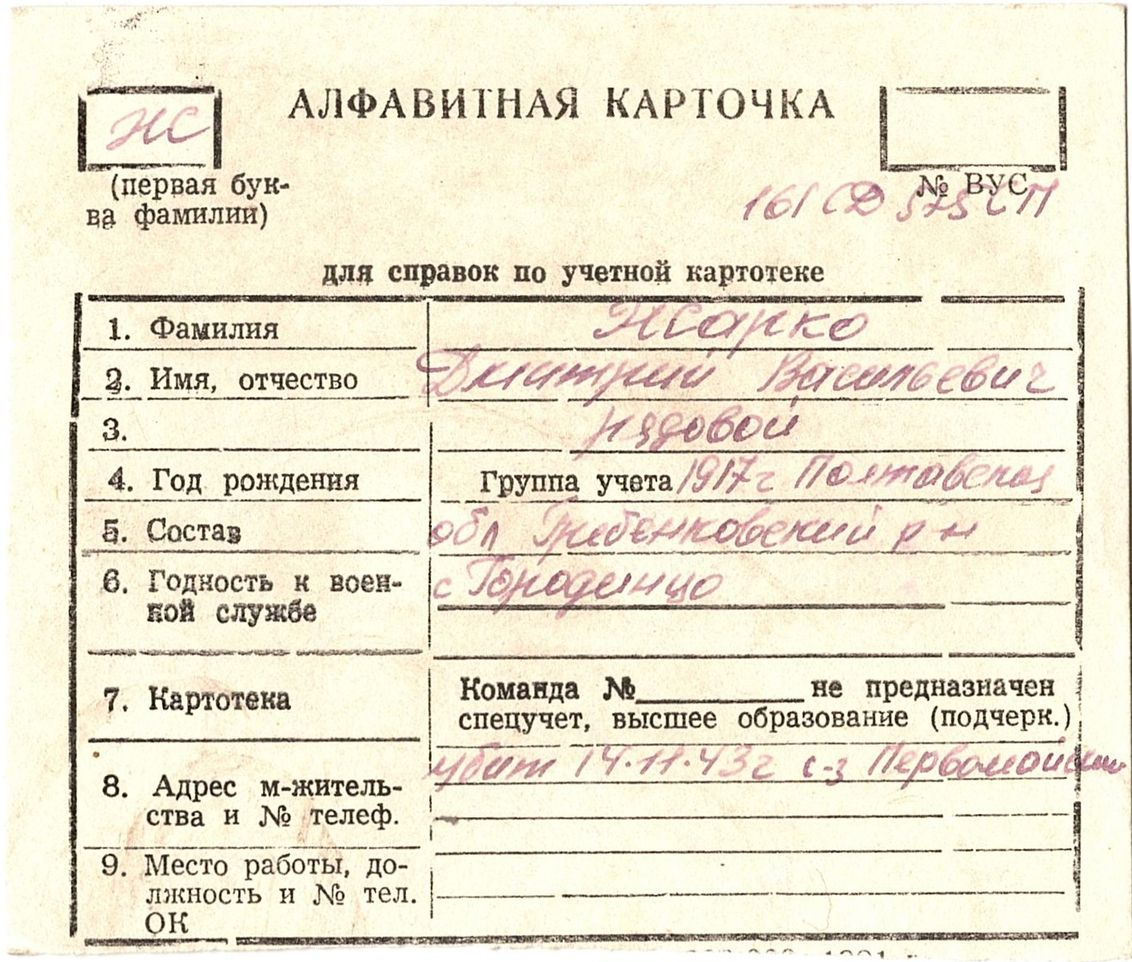 Ж
АЛФАВИТНАЯ КАРТОЧКА
(первая бук-
ва фамилии)
№ ВУС
161 СД 575 СП
для справок по учетной картотеке
1. Фамилия Жарко
2. Имя, отчество Дмитрий Васильевич
3. рядовой
4. Год рождения Группа учета 1917 г Полтавская
5. Состав обл Гребенковский р-н
6. Годность к воен- с Городищо
ной службе
7. Картотека Команда №________не предназначен
спецучет, высшее образование (подчерк.)
убит 14.11.43 г с-з Первомайский
8. Адрес м-житель-
ства и № телеф.
9. Место работы, до-
лжность и № тел.
ОК